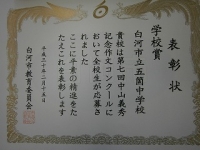 表彰状
学校賞
白河市立五箇中学校
貴校は第七回中山義秀
記念作文コンクールに
おいて全校生が応募さ
れました
ここに平素の精進をた
たえこれを表彰します
平成三十年二月十五日
白河市教育委員会